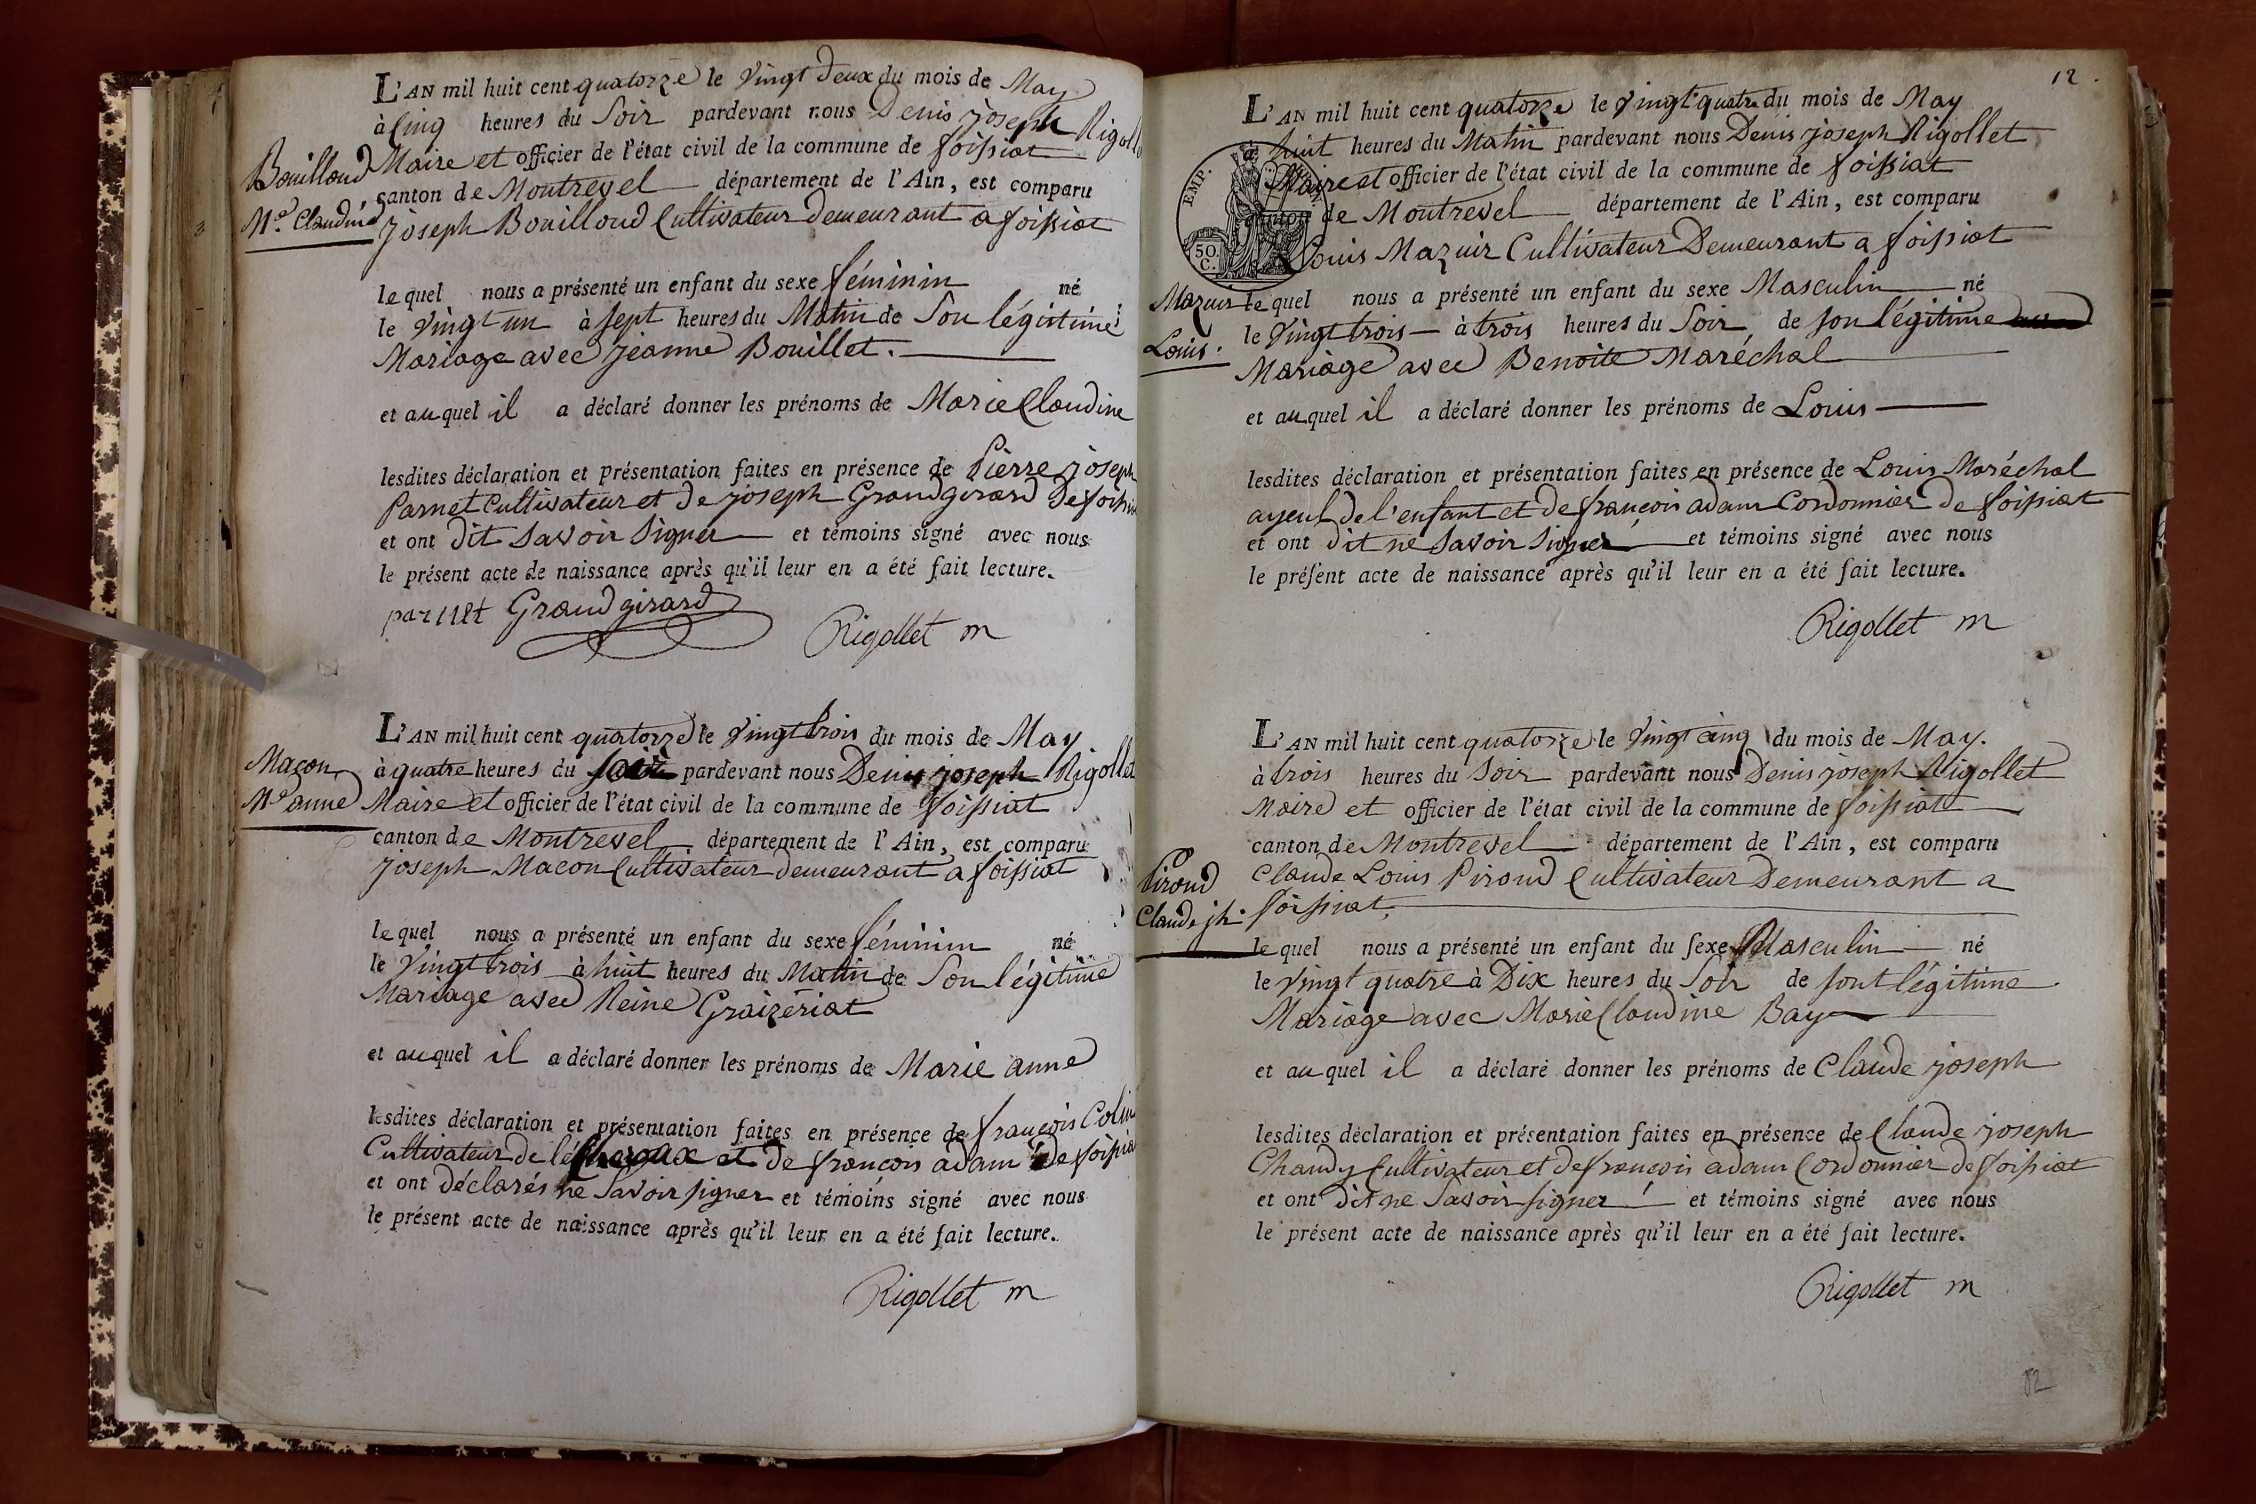 L'AN mil huit cent quatorze le Vingt Deux du mois de May
à Cinq heures du Soir pardevant nous Denis joseph Rigoll
Maire et officier de l'état civil de la commune de foissiat
canton de Montrevel département de l'Ain, est comparu
joseph Bouilloud Cultivateur demeurant a foissiat
Bouilloud
Me. Claudine
le quel nous a présenté un enfant du sexe féminin né
le Vingt un à sept heures du Matin de Son légitime
Mariage avec jeanne Bouillet.
et au quel il a déclaré donner les prénoms de Marie Claudine
lesdites déclaration et présentation faites en présence de Pierre joseph
Parnet Cultivateur et de joseph Grandgirard de foissia
et ont dit savoir signer et témoins signé avec nous
le présent acte de naissance après qu'il leur en a été fait lecture.
parnet Grandgirard
Rigollet m
L'AN mil huit cent quatorze le Vingt trois du mois de May
à quatre heures du pardevant nous Denis joseph Rigollet
Maire et officier de l'état civil de la commune de foissiat
canton de Montrevel département de l'Ain, est comparu
joseph Macon Cultivateur demeurant a foissiat
Maçon
Me anne
le quel nous a présenté un enfant du sexe féminin né
le Vingt trois à huit heures du Matin de Son légitime
Mariage avec Reine Graizeriat
et au quel il a déclaré donner les prénoms de Marie anne
lesdites déclaration et présentation faites en présence de françois Colin
Cultivateur de léchereux et de françois adam de foissia
et ont déclarés ne Savoir signer et témoins signé avec nous
le présent acte de naissance après qu'il leur en a été fait lecture.
Rigollet m
12.
L'AN mil huit cent quatorze le vingt quatre du mois de May
à huit heures du Matin pardevant nous Denis joseph Rigollet
Maire et officier de l'état civil de la commune de foissiat
canton de Montrevel département de l'Ain, est comparu
Louis Mazuir Cultivateur Demeurant a foissiat
EMP.
50.
C.
Mazuir
Louis.
le quel nous a présenté un enfant du sexe Masculin né
le Vingt trois à trois heures du Soir de son légitime
Mariage avec Benoite Maréchal
et au quel il a déclaré donner les prénoms de Louis
lesdites déclaration et présentation faites en présence de Louis Maréchal
ayeul de l'enfant et de françois adam Cordonnier de foissiat
et ont dit ne savoir signer et témoins signé avec nous
le présent acte de naissance après qu'il leur en a été fait lecture.
Rigollet m
L'AN mil huit cent quatorze le Vingt cinq du mois de May.
à trois heures du Soir pardevant nous Denis joseph Rigollet
Maire et officier de l'état civil de la commune de foissiat
canton de Montrevel département de l'Ain, est comparu
Claude Louis Piroud Cultivateur Demeurant a
foissiat,
Piroud
Claude jh.
le quel nous a présenté un enfant du sexe Masculin né
le Vingt quatre à Dix heures du Soir de sont légitime
Mariage avec Marie Claudine Bay
et au quel il a déclaré donner les prénoms de Claude joseph
lesdites déclaration et présentation faites en présence de Claude joseph
Chandy Cultivateur et de françois adam Cordonnier de foissiat
et ont dit ne Savoir signer et témoins signé avec nous
le présent acte de naissance après qu'il leur en a été fait lecture.
Rigollet m